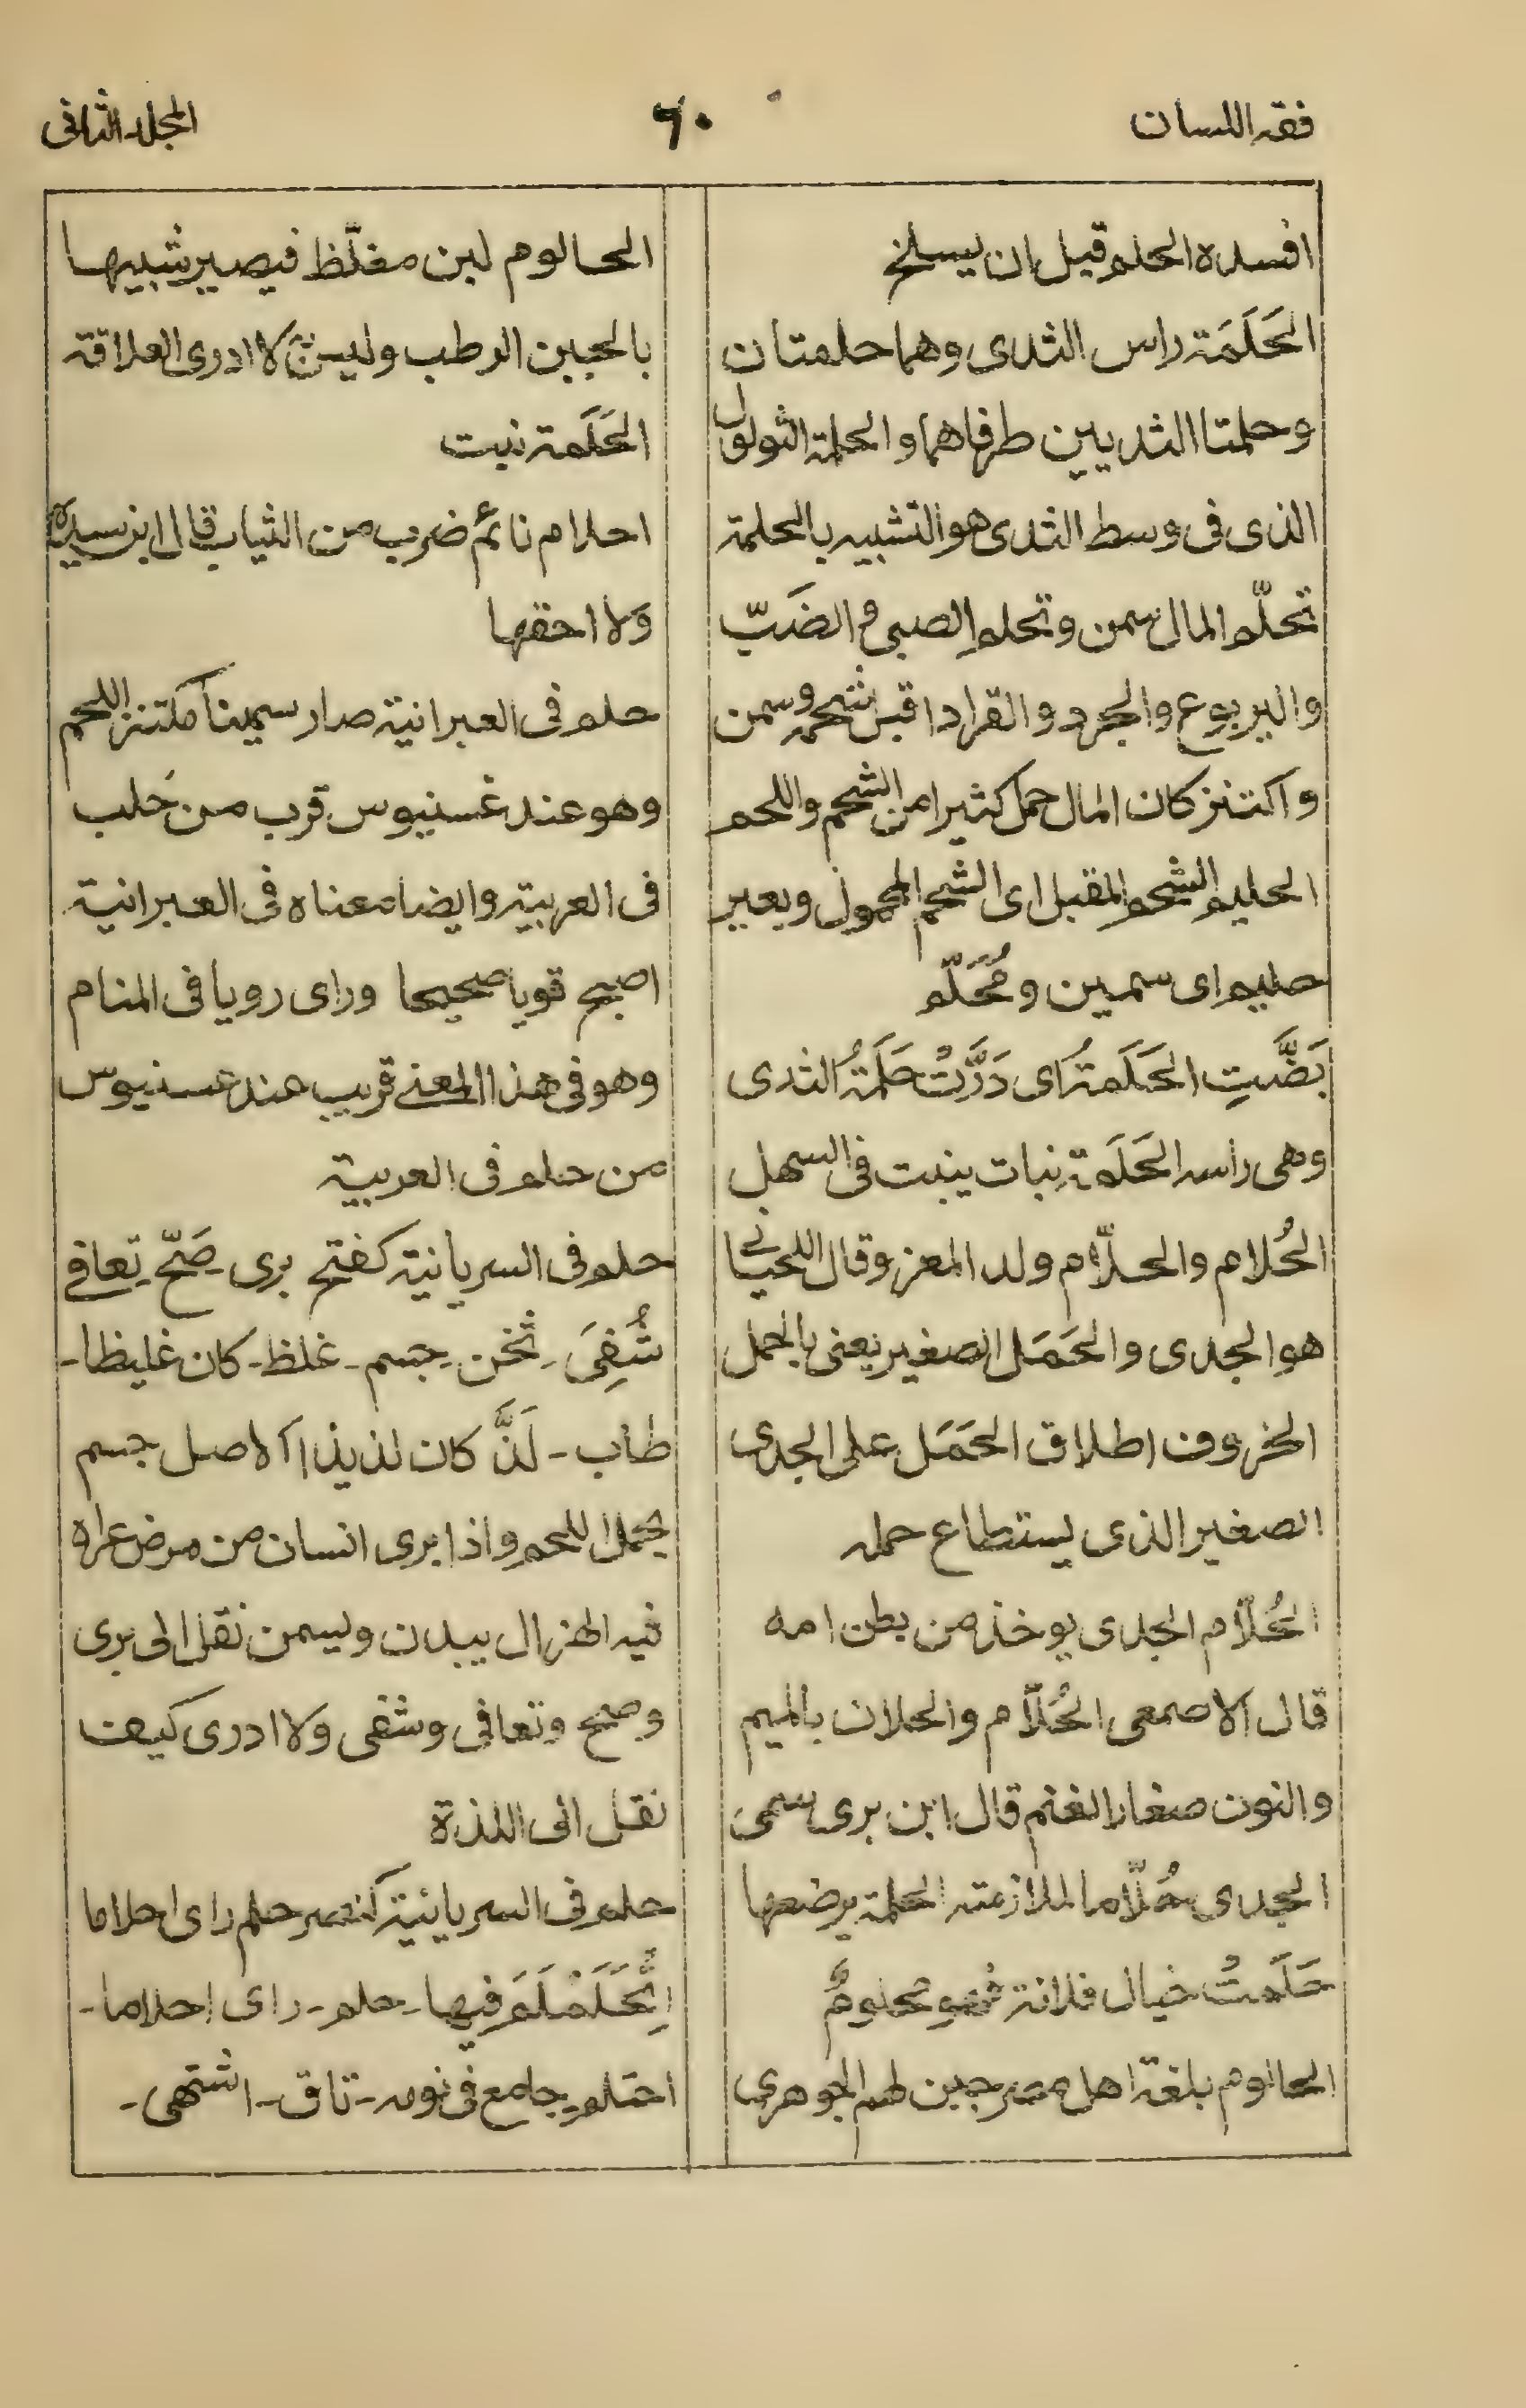 فقه اللسان
٦٠
المجلد الثانى
افسده الحلم قبل ان يسلخ
الحَلَمَة راس الثدى وهما حلمتان
وحلمتا الثديين طرفاهما والحلمة الثولول
الذى فى وسط الثدى هو التشبيه بالحلمة
تحلّم المال سمن وتحلم الصبى و الضَبّ
واليربوع والجرد والقراد اقبل شحمه وسمن
واكتنز كان المال حمل كثيرا من الشحم واللحم
الحليم الشحم المقبل اى الشحم المحمول وبعير
حليم اى سمين ومُحَلّم
بَضَّتِ الحَلَمةُ اى دَرَّتْ حَلَمَةُ الثدى
وهى راسه الحَلَمَة نبات ينبت فى السهل
الحُلام والحلّام ولد المعز وقال اللحيانى
هو الجدى والحَمَل الصغير يعنى بالحمل
الخروف اطلاق الحَمَل على الجدى
الصغير الذى يستطاع حمله
الحُلّام الجدى يوخذ من بطن امه
قال الاصمعى الحُلّام والحلان بالميم
والنون صغار الغنم قال ابن برى سمى
الجدى حُلّاما لملازمته الحلمة يرضعها
حَلَمتُ خيال فلانة فهو محلومٌ
الحالوم بلغة اهل مصر جبن لهم الجوهرى
الحالوم لبن مغلّظ فيصير شبيها
بالجبن الرطب وليس به لا ادرى العلاقة
الحَلَمة نبت
احلام نائم ضرب من الثياب قال ابن سيده
ولا احقها
حلم فى العبرانية صار سمينا مكتنز اللحم
وهو عند غسنيوس قرب من حَلب
فى العربية وايضا معناه فى العبرانية
اصبح قويا صحيحا وراى رويا فى المنام
وهو فى هذا المعنے قريب عند غسنيوس
من حلم فى العربية
حلم فى السريانية كفتح برى ـ صَحّ ـ تعافے
شُفِىَ ـ ثخن ـ جسم ـ غلظ ـ كان غليظا ـ
طاب ـ لَذَّ كان لذيذا الاصل جسم
بحمل اللحم واذا برى انسان من مرض عراه
فيه الهزال يبدن ويسمن نقل الى برى
وصح وتعافى وشفى ولا ادرى كيف
نقل الى اللذة
حلم فى السريانية كنصر حلم راى احلاما
فيها ـ حلم ـ راى احلاما ـ
احتلم ـ جامع فى نومه ـ تاق ـ اشتهى ـ